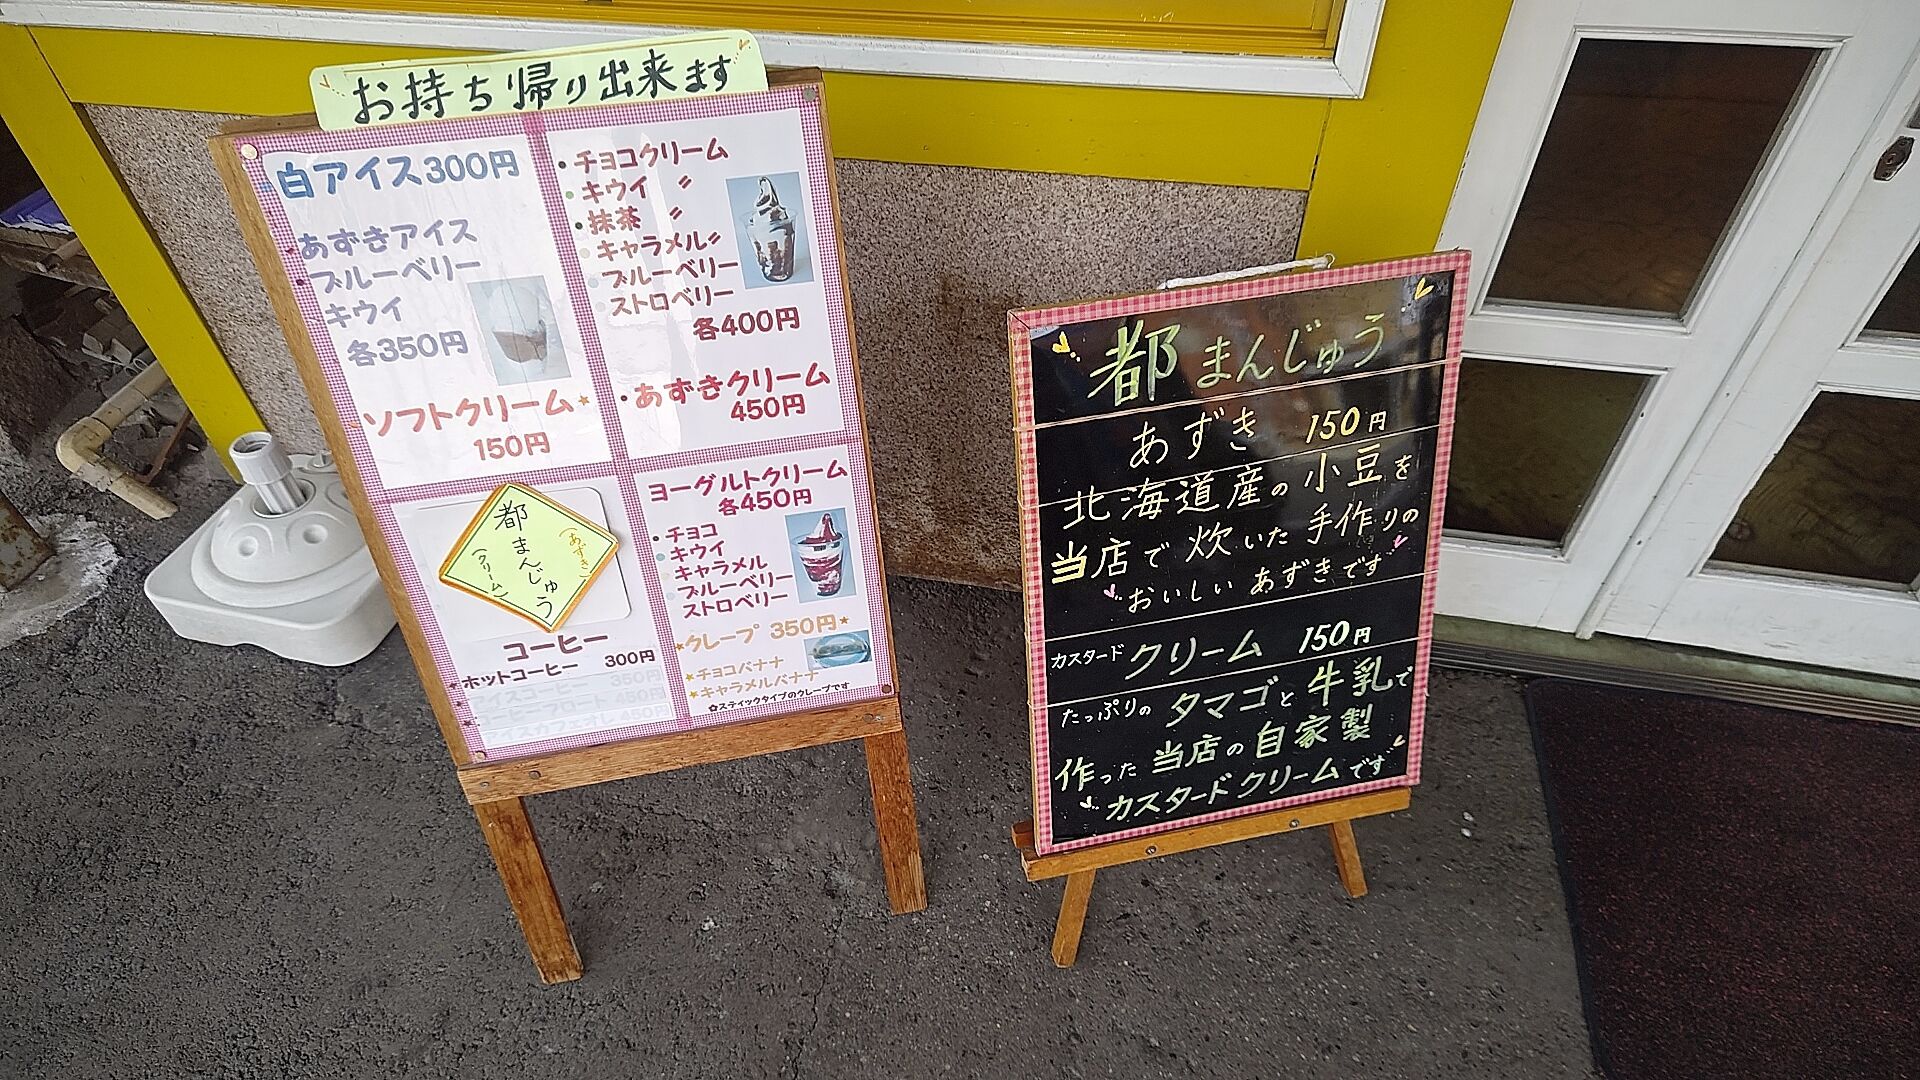 お持ち帰り出来ます
白アイス300円
あずきアイス
ブルーベリー
キウイ
各350円
ソフトクリーム★
150円
・チョコクリーム
・キウイ 〃
・抹茶 〃
・キャラメル〃
・ブルーベリー
・ストロベリー
各400円
・あずきクリーム
450円
都まんじゅう
(あずき)
(クリーム)
コーヒー
★ホットコーヒー 300円
アイスコーヒー 350円
コーヒーフロート 450円
アイスカフェオレ 450円
ヨーグルトクリーム
各450円
・チョコ
・キウイ
・キャラメル
・ブルーベリー
・ストロベリー
★クレープ 350円★
★チョコバナナ
★キャラメルバナナ
✿スティックタイプのクレープです
都まんじゅう
あずき 150円
北海道産の小豆を
当店で炊いた手作りの
おいしいあずきです
カスタードクリーム 150円
たっぷりのタマゴと牛乳で
作った当店の自家製
カスタードクリームです